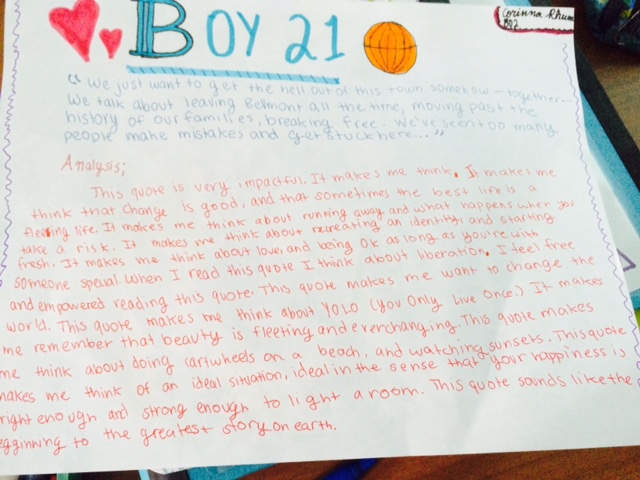 BOY 21
Corinna Rhum
802
"We just want to get the hell out of this town somehow—together...
We talk about leaving Belmont all the time, moving past the
history of our families, breaking free. We've seen too many
people make mistakes and get stuck here..."
Analysis;
This quote is very impactful. It makes me think. It makes me
think that change is good, and that sometimes the best life is a
fleeting life. It makes me think about running away and what happens when you
take a risk. It makes me think about recreating an identity and starting
fresh. It makes me think about love, and being ok as long as you're with
someone special. When I read this quote I think about liberation. I feel free
and empowered reading this quote. This quote makes me want to change the
world. This quote makes me think about YOLO (You Only Live Once.) It makes
me remember that beauty is fleeting and everchanging. This quote makes
me think about doing cartwheels on a beach, and watching sunsets. This quote
makes me think of an ideal situation, ideal in the sense that your happiness is
right enough and strong enough to light a room. This quote sounds like the
egginning to the greatest story on earth.